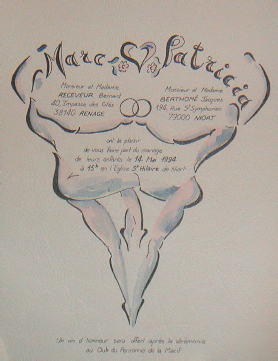 Marc Patricia
Monsieur et Madame
RECEVEUR Bernard
40, Impasse des
38140 RENAGE
Monsieur et Madame
BERTHOMÉ Jacques
194, Rue St Symphorien
79000 NIORT
ont le plaisir
de vous faire part du mariage
de leurs enfants le 14 Mai 1994
à 15h en l'Eglise St Hilaire de Niort
Un vin d'honneur sera offert après la cérémonie
au Club du Personnel de la Macif